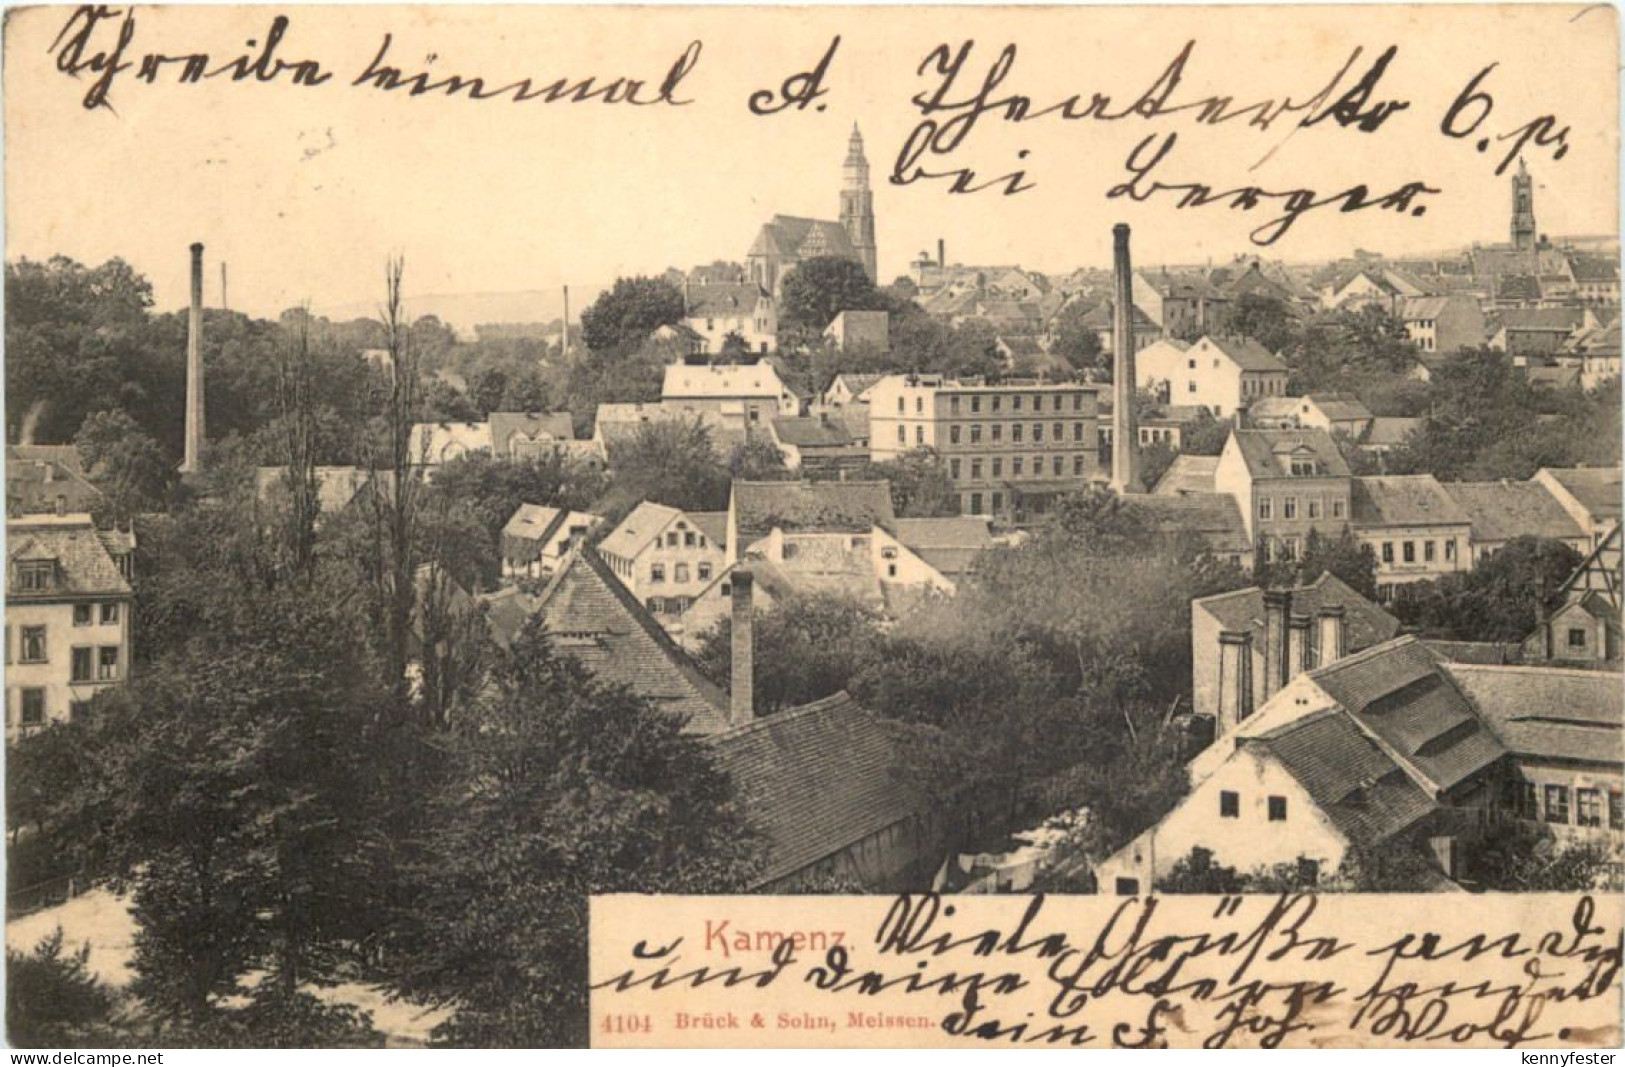 Schreibe einmal A. Theaterstr 6. p,
bei Berger.
Kamenz.
Viele Grüße an Dich
und deine Eltern sendet
dein F. Joh. Wolf.
4104 Brück & Sohn, Meissen.
delcampe.net
kennyfester